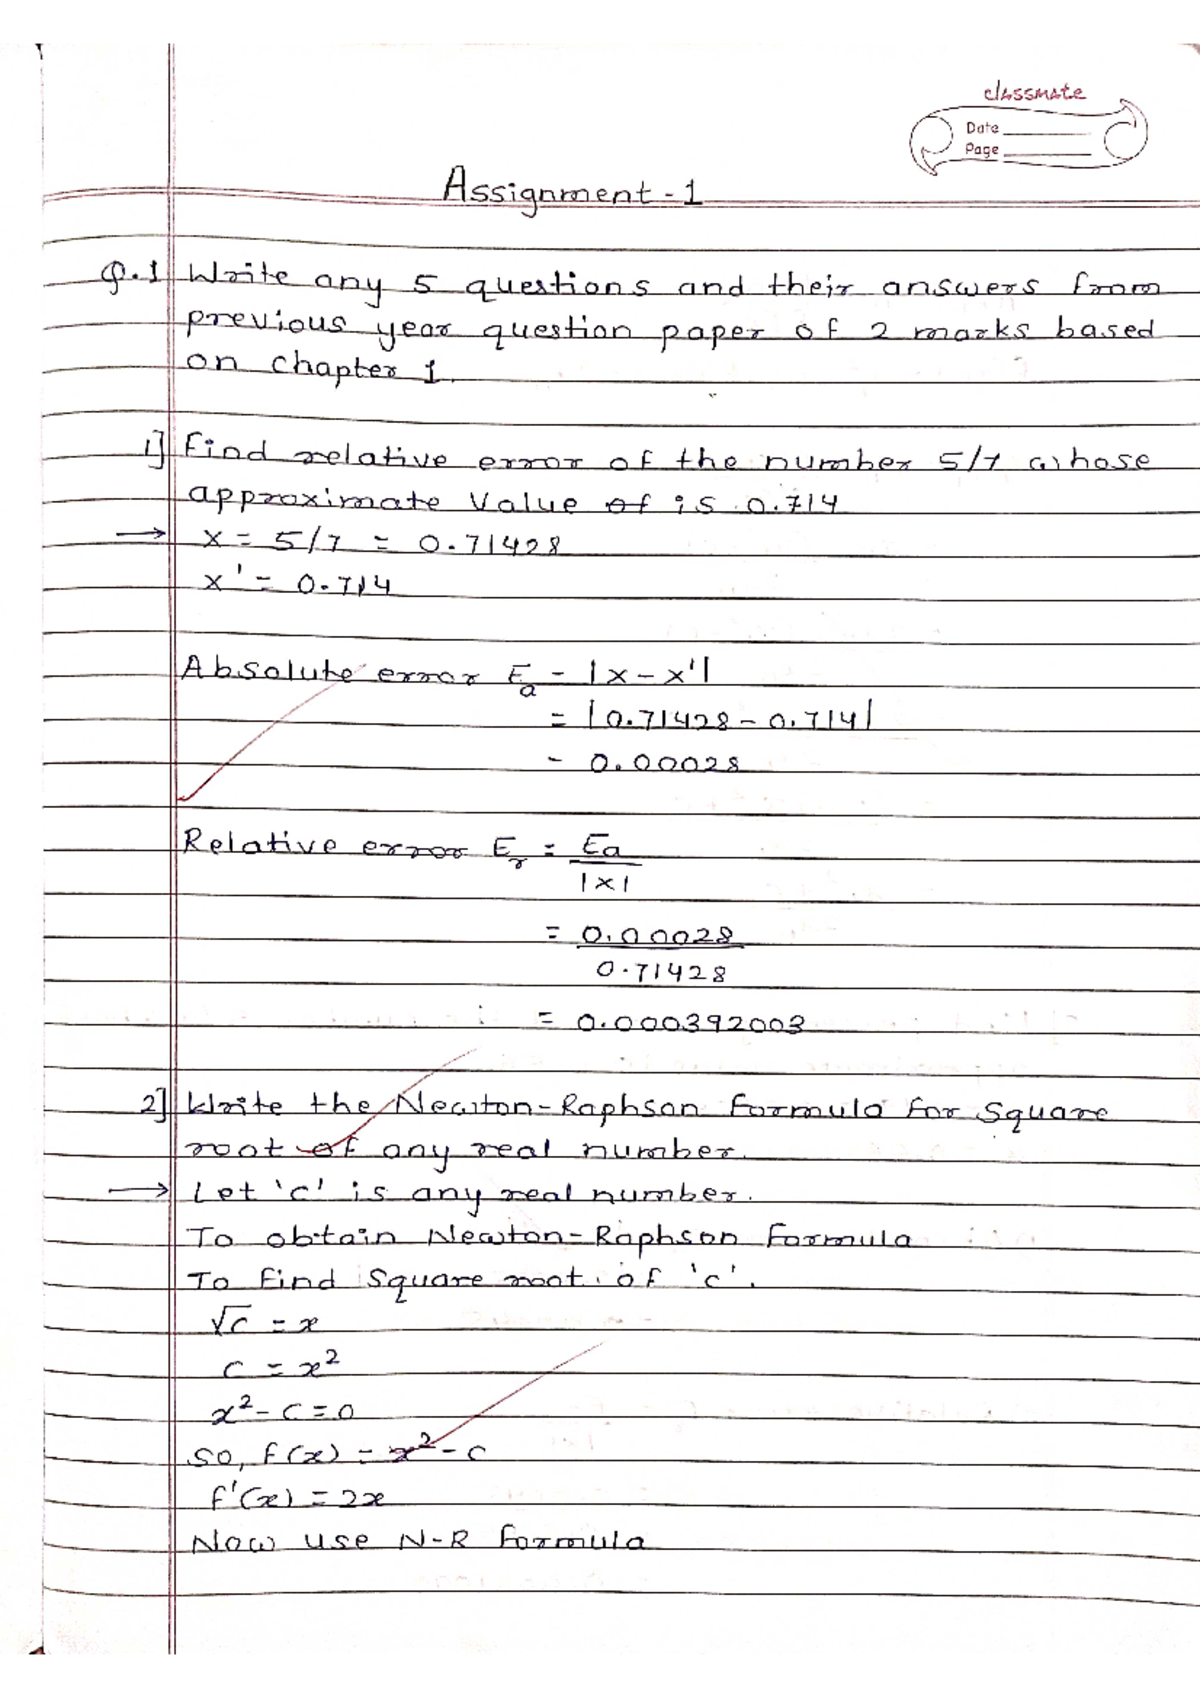 classmate
Date
Page
Assignment - 1
Q.1 Write any 5 questions and their answers from
previous year question paper of 2 marks based
on chapter 1.
1] Find relative error of the number 5/7 whose
approximate value of is 0.714
→ x = 5/7 = 0.71428
x' = 0.714
Absolute error Ea = |x - x'|
= |0.71428 - 0.714|
= 0.00028
Relative error Er = Ea
|x|
= 0.00028
0.71428
= 0.000392003
2] Write the Newton-Raphson formula for square
root of any real number.
→ Let 'c' is any real number.
To obtain Newton-Raphson formula
To find square root of 'c'.
√c = x
c = x²
x² - c = 0
so, f(x) = x² - c
f'(x) = 2x
Now use N-R formula